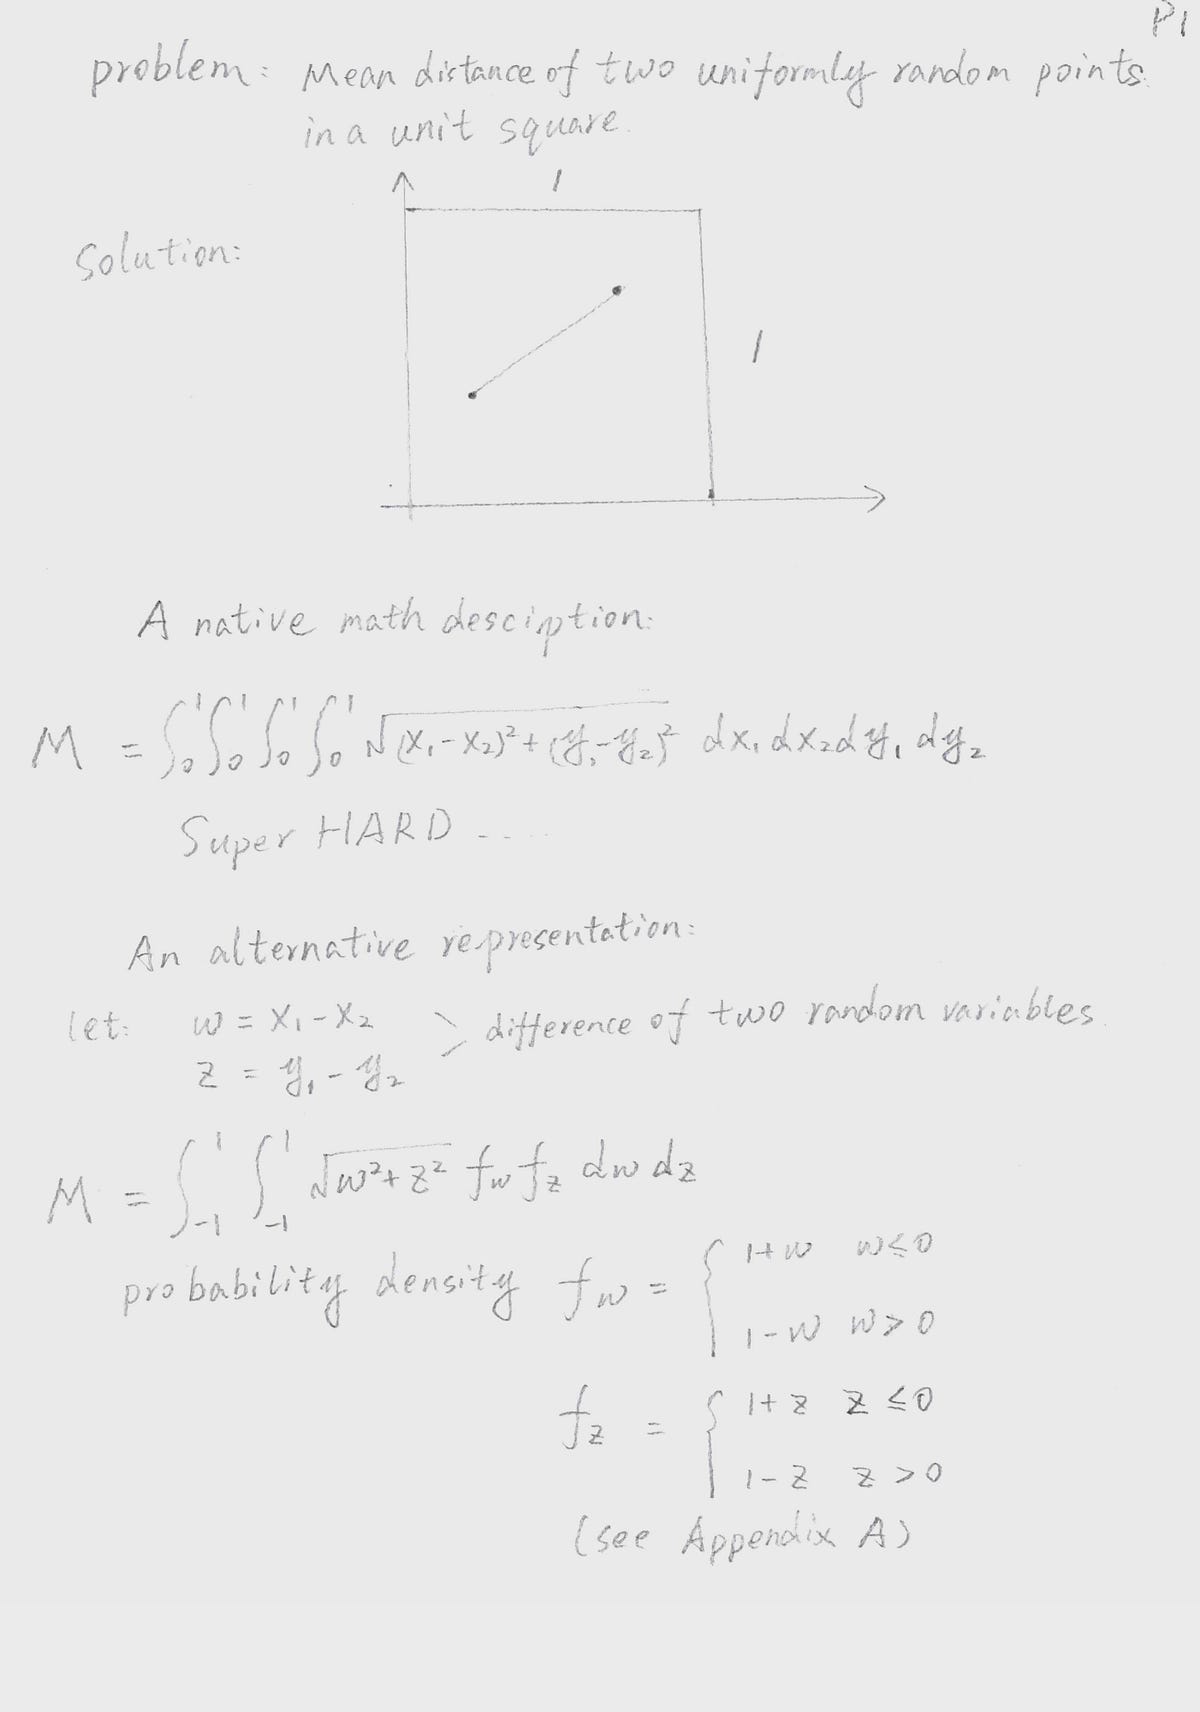 P1
problem: Mean distance of two uniformly random points
in a unit square.
1
Solution:
1
A native math desciption:
M = ∫₀¹∫₀¹∫₀¹∫₀¹ √(x₁-x₂)²+(y₁-y₂)² dx₁dx₂dy₁dy₂
Super HARD .....
An alternative representation:
let: w = x₁-x₂ > difference of two random variables.
z = y₁-y₂
M = ∫₋₁¹ ∫₋₁¹ √w²+z² f_w f_z dw dz
probability density f_w = { 1+w w≤0
1-w w>0
f_z = { 1+z z≤0
1-z z>0
(see Appendix A)